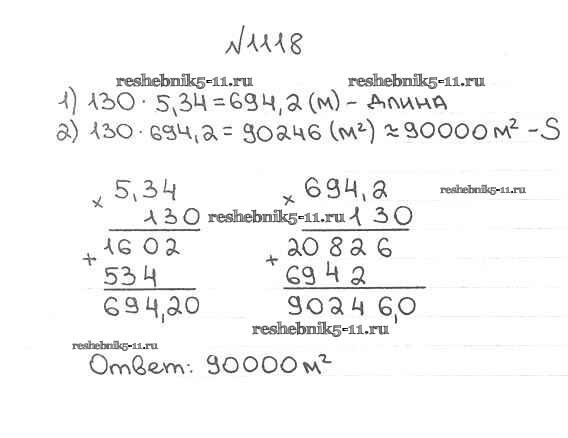 №1118
reshebnik5-11.ru reshebnik5-11.ru
1) 130 · 5,34 = 694,2 (м) - длина
2) 130 · 694,2 = 90246 (м²) ≈ 90000 м² - S
× 5,34
130
+ 1602
534
694,20
reshebnik5-11.ru
× 694,2
130
+ 20826
6942
90246,0
reshebnik5-11.ru
reshebnik5-11.ru
reshebnik5-11.ru
Ответ: 90000 м²